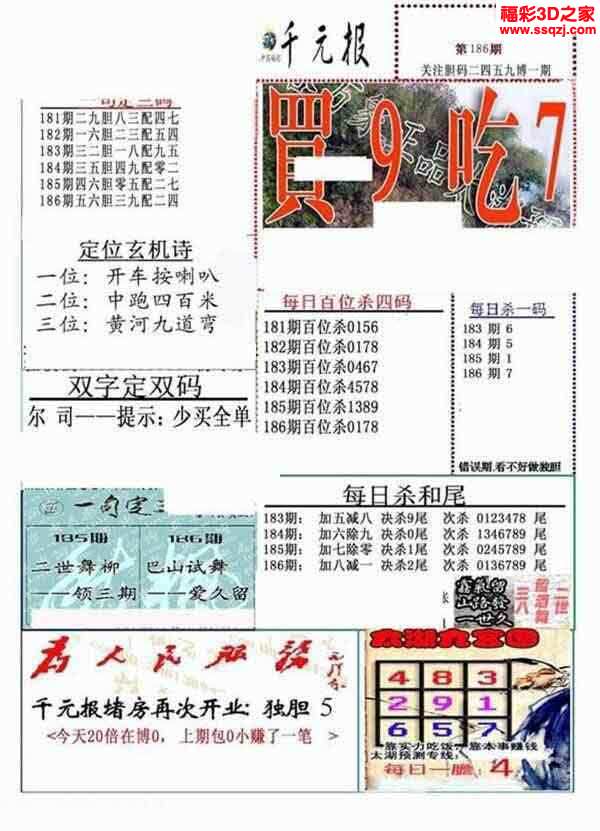 福彩3D之家
www.ssqzj.com
千元报
第186期
关注胆码二四五九博一期
一句定三码
181期二九胆八三配四七
182期一六胆二三配五四
183期三二胆一八配九五
184期三五胆四九配零二
185期四六胆零五配二七
186期五六胆三九配二四
買9吃7
定位玄机诗
一位：开车按喇叭
二位：中跑四百米
三位：黄河九道弯
每日百位杀四码
181期百位杀0156
182期百位杀0178
183期百位杀0467
184期百位杀4578
185期百位杀1389
186期百位杀0178
每日杀一码
183 期 6
184 期 5
185 期 1
186 期 7
错误期,看不好做独胆
双字定双码
尔 司——提示：少买全单
每日杀和尾
183期： 加五减八 决杀9尾 次杀 0123478 尾
184期： 加六除九 决杀0尾 次杀 1346789 尾
185期： 加七除零 决杀1尾 次杀 0245789 尾
186期： 加八减一 决杀2尾 次杀 0136789 尾
一句定三
185期 186期
二世舞柳 巴山试舞
——领三期 ——爱久留
为人民服务
千元报堵房再次开业：独胆 5
<今天20倍在博0，上期包0小赚了一笔 >
太湖九宫图
4 8 3
2 9 1
6 5 7
靠实力吃饭，靠本事赚钱
太湖预测专线：
每日一胆：4